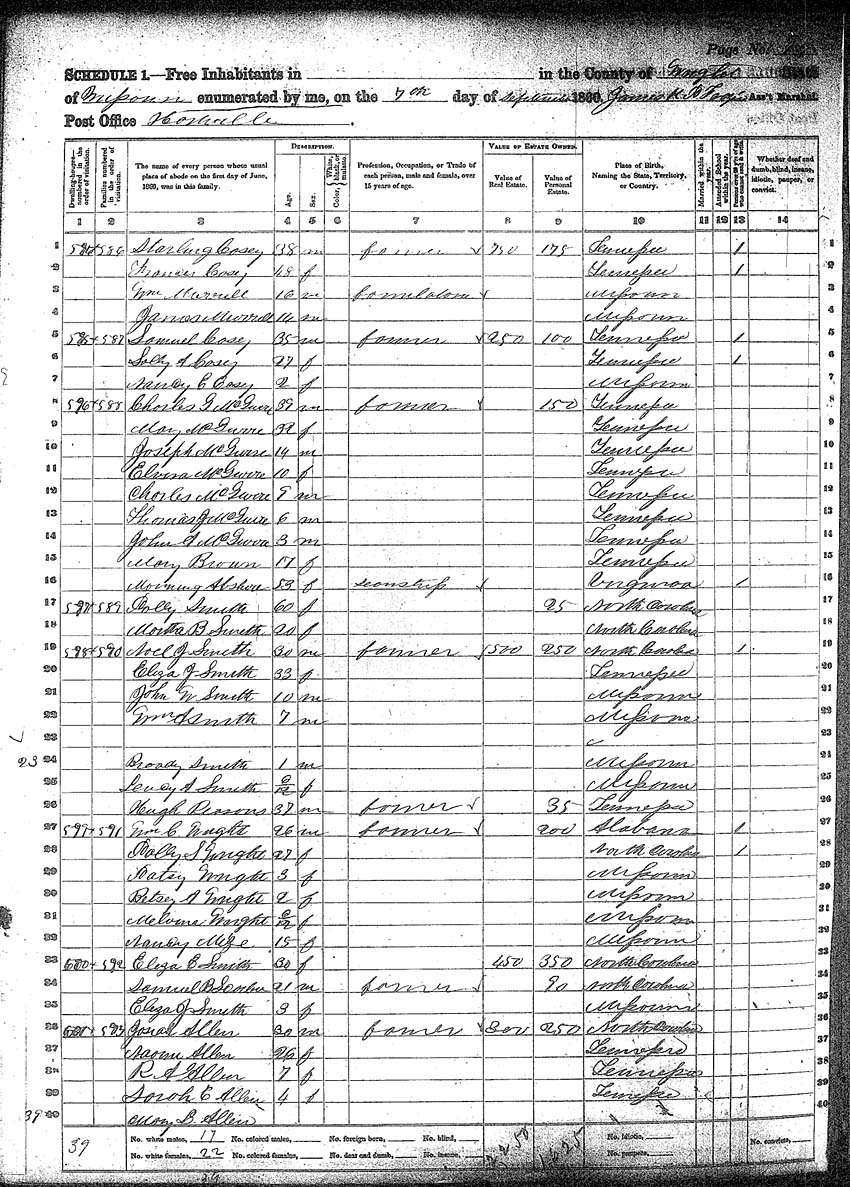 Page No.
SCHEDULE 1.—Free Inhabitants in in the County of Wright State
of Missouri enumerated by me, on the 7th day of September 1860. Ass't Marshal
Post Office Hartville
DESCRIPTION. VALUE OF ESTATE OWNED.
Dwelling-houses—numbered in the order of visitation. Families numbered in the order of visitation. The name of every person whose usual place of abode on the first day of June, 1860, was in this family. Age. Sex. Color, White, black, or mulatto. Profession, Occupation, or Trade of each person, male and female, over 15 years of age. Value of Real Estate. Value of Personal Estate. Place of Birth, Naming the State, Territory, or Country. Married within the year. Attended School within the year. Persons over 20 y'rs of age who cannot read & write. Whether deaf and dumb, blind, insane, idiotic, pauper, or convict.
1 2 3 4 5 6 7 8 9 10 11 12 13 14
1 586 Starling Casey 38 m farmer 750 175 Tennessee / 1
2 Frances Casey 48 f Tennessee / 2
3 Wm Murrell 16 m farm laborer Missouri 3
4 James Murrell 14 m Missouri 4
5 587 Samuel Casey 35 m farmer 250 100 Tennessee / 5
6 Sally A Casey 27 f Tennessee / 6
7 Nancy E Casey 2 f Missouri 7
8 596 588 Charles G McGuire 39 m farmer 150 Tennessee 8
9 Mary McGuire 39 f Tennessee 9
10 Joseph McGuire 14 m Tennessee 10
11 Elvira McGuire 10 f Tennessee 11
12 Charles McGuire 9 m Tennessee 12
13 Thomas J McGuire 6 m Tennessee 13
14 John A McGuire 3 m Tennessee 14
15 Mary Brown 17 f Tennessee 15
16 Morning Abshire 53 f seamstress Virginia / 16
17 597 589 Polly Smith 60 f 25 North Carolina 17
18 Martha B Smith 20 f North Carolina 18
19 598 590 Noel J Smith 30 m farmer 500 250 North Carolina / 19
20 Eliza J Smith 33 f Tennessee 20
21 John W Smith 10 m Missouri 21
22 Wm Smith 7 m Missouri 22
23 23
23 24 Broady Smith 1 m Missouri 24
25 Smith f Missouri 25
26 Hugh Reasons 37 m farmer 35 Tennessee 26
27 599 591 Wm C Wright 26 m farmer 200 Alabama / 27
28 Polly S Wright 27 f North Carolina / 28
29 Patsy Wright 3 f Missouri 29
30 Betsy A Wright 2 f Missouri 30
31 Melvina Wright f Missouri 31
32 Nancy Mize 15 f Missouri 32
33 600 592 Eliza E Smith 30 f 450 350 North Carolina 33
34 Samuel B 21 m farmer 90 North Carolina 34
35 Eliza J Smith 3 f Missouri 35
36 601 593 Josiah Allen 30 m farmer 300 250 North Carolina 36
37 Naomi Allen 26 f Tennessee 37
38 R A Allen 7 f Tennessee 38
39 Sarah E Allen 4 f Tennessee 39
39 40 Mary B. Allen 40
39 No. white males, 17 No. colored males, No. foreign born, No. blind, 2250 1625 No. idiotic, No. convicts,
No. white females, 22 No. colored females, No. deaf and dumb, No. insane, No. paupers,
39